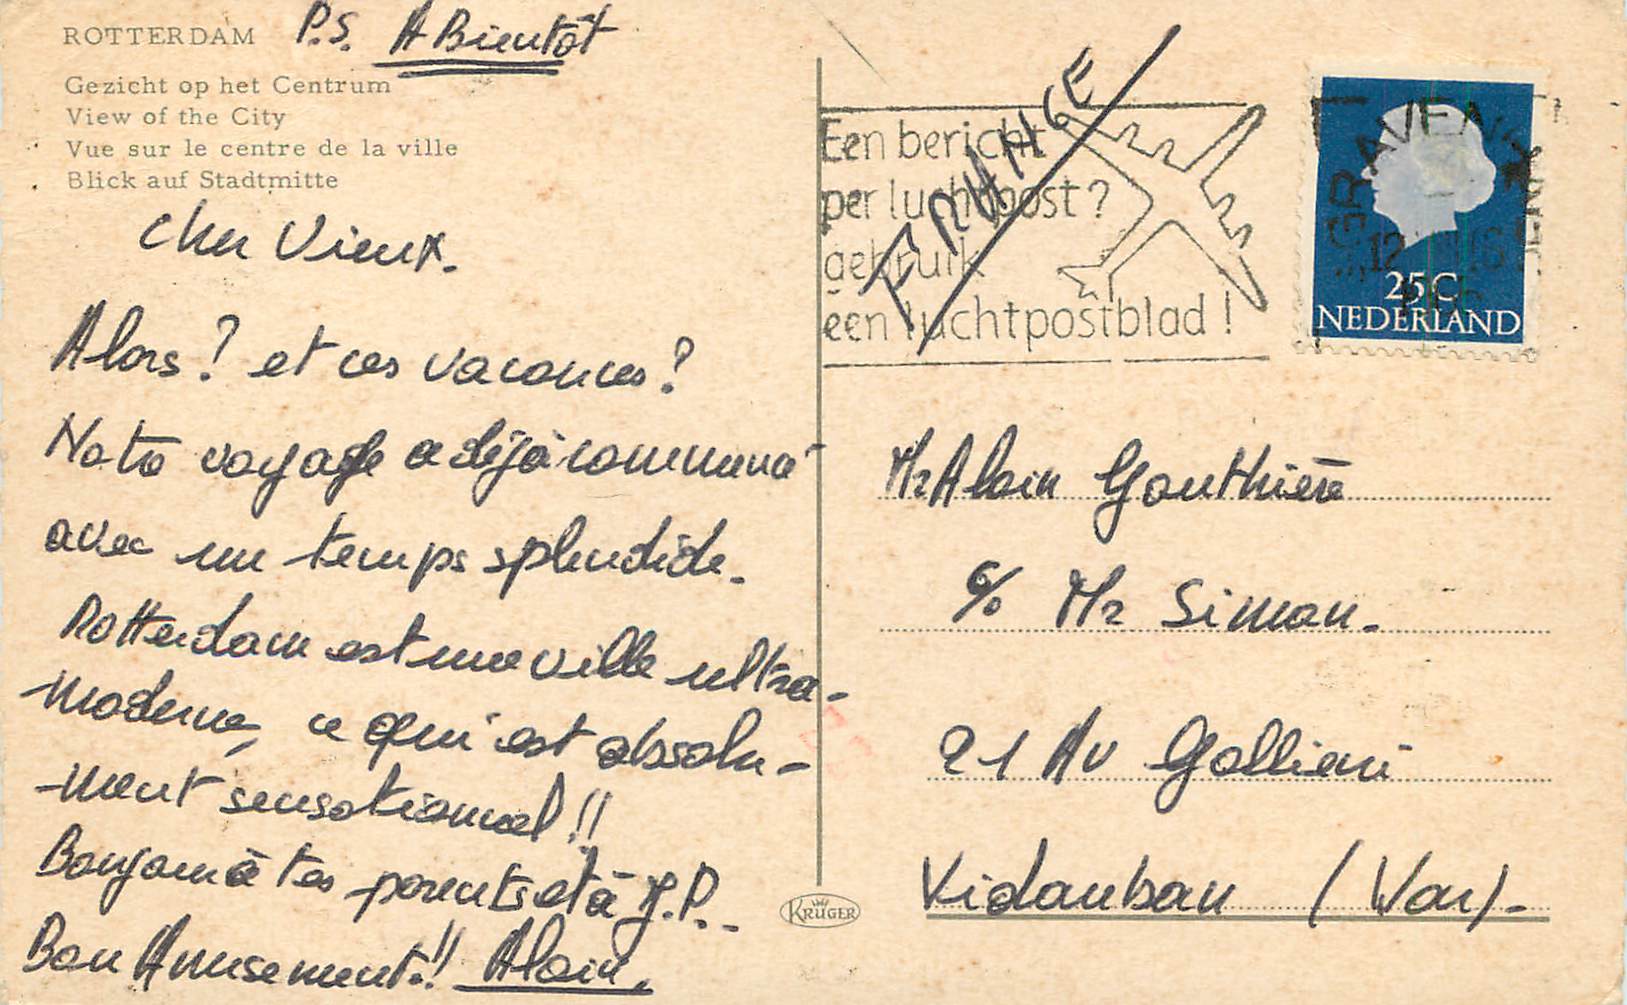 ROTTERDAM P.S. A Bientôt
Gezicht op het Centrum
View of the City
Vue sur le centre de la ville
Blick auf Stadtmitte
Cher Vieux.
Alors? et ces vacances?
Notre voyage a déjà commencé
avec un temps splendide.
Rotterdam est une ville ultra-
moderne, ce qui est absolu-
-ment sensationnel!!
Bonjour à tes parents et à J.P.-
Bon Amusement!! Alain.
FRANCE
Een bericht
per luchtpost?
gebruik
een luchtpostblad!
'S GRAVENHAGE
12
25 C
NEDERLAND
Mr Alain Gouthière
c/o Mr Simon.
21 Av Gallieni
Vidauban (Var)-
KRUGER